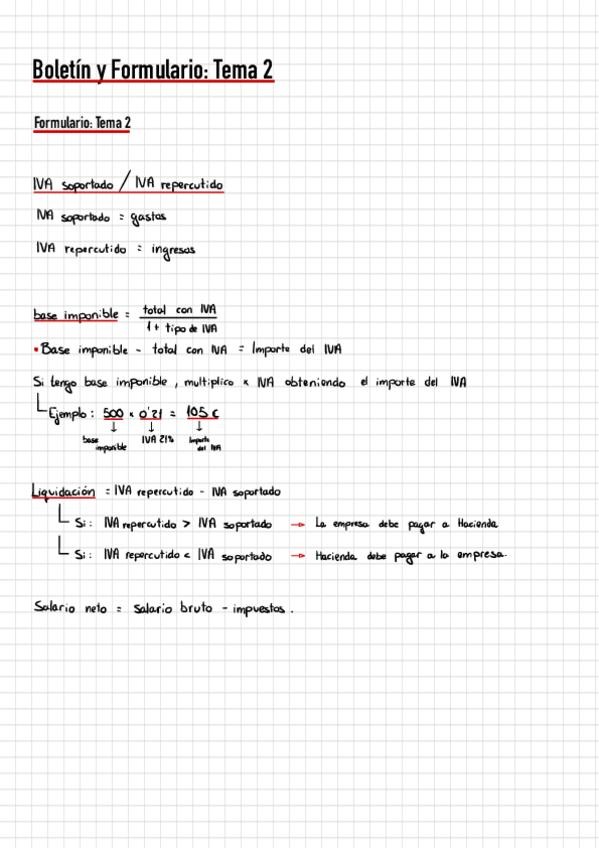 Boletín y Formulario: Tema 2
Formulario: Tema 2
IVA soportado / IVA repercutido
IVA soportado = gastos
IVA repercutido = ingresos
base imponible = total con IVA
1 + tipo de IVA
• Base imponible - total con IVA = Importe del IVA
Si tengo base imponible, multiplico x IVA obteniendo el importe del IVA
Ejemplo: 500 x 0'21 = 105 €
↓ ↓ ↓
base imponible IVA 21% Importe del IVA
Liquidación = IVA repercutido - IVA soportado
Si: IVA repercutido > IVA soportado → La empresa debe pagar a Hacienda
Si: IVA repercutido < IVA soportado → Hacienda debe pagar a la empresa.
Salario neto = Salario bruto - impuestos.